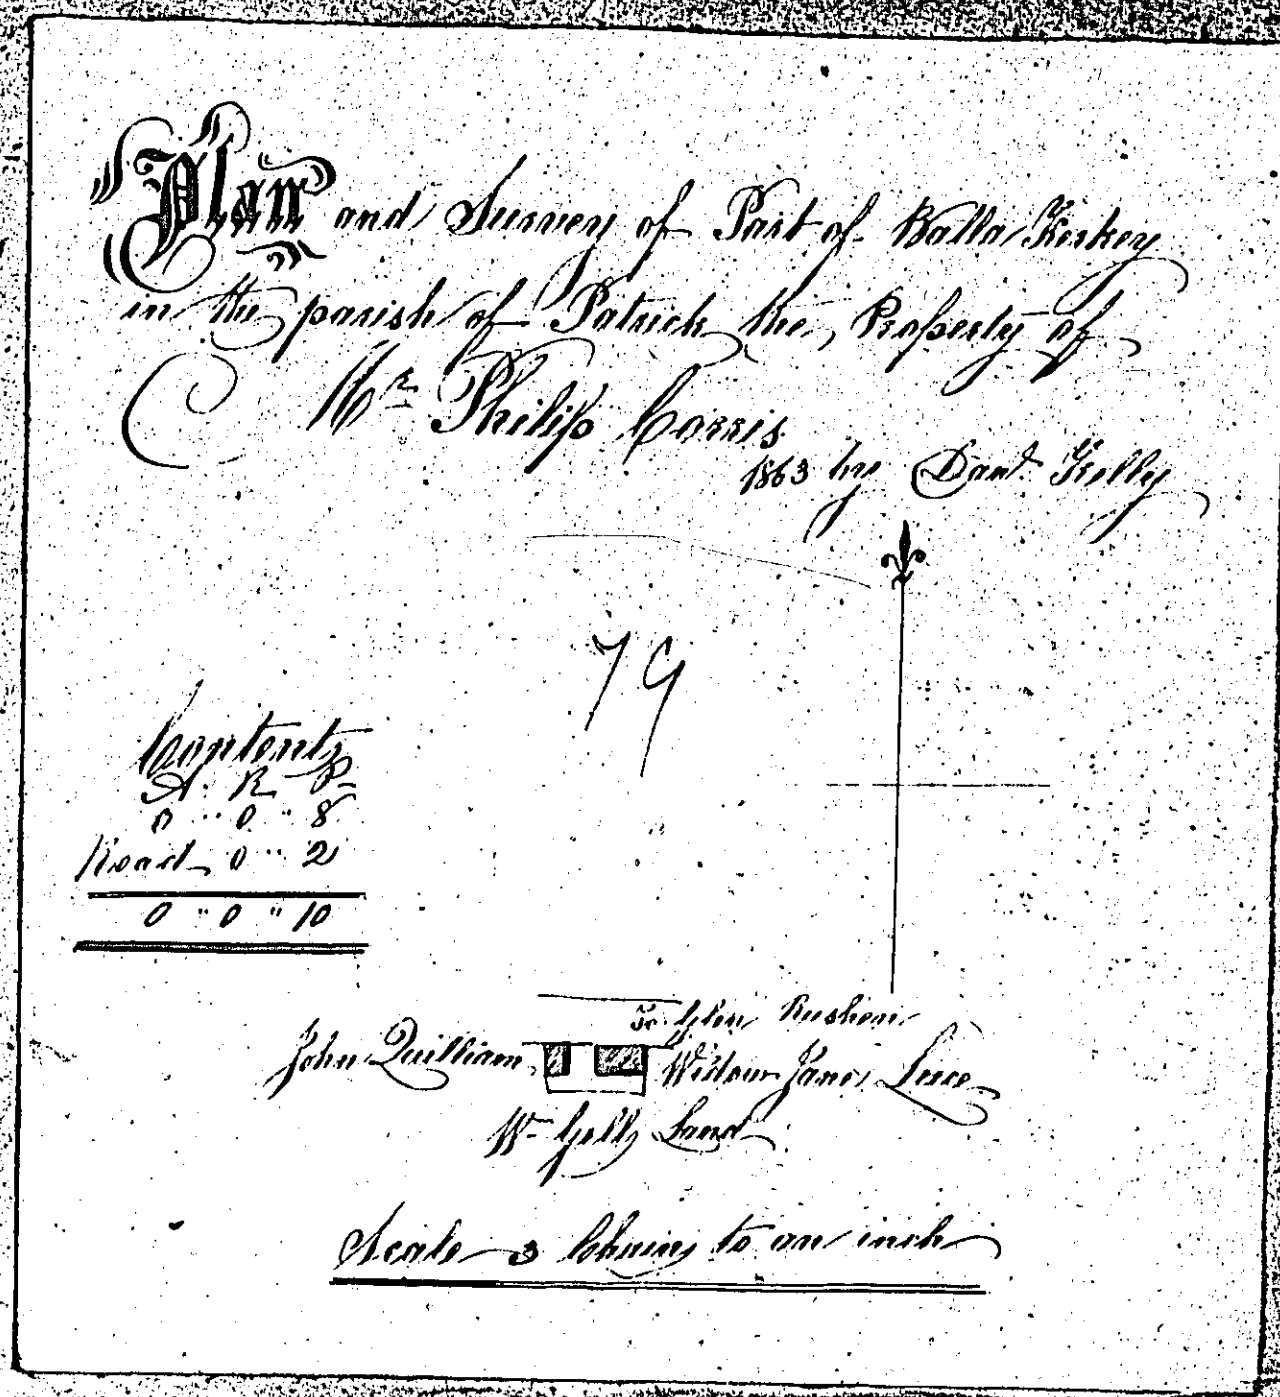 Plan and Survey of Part of Balla Kerkey
in the parish of Patrick the Property of
Mr Philip Corris
1863 by Danl. Kelly
79
Contents
A. R. P.
0 " 0 " 8
Road 0 " 2
0 " 0 " 10
To Glen Rushen
John Quilliam
Widow Jane
Wm Gell Land
Scale 3 Chains to an inch